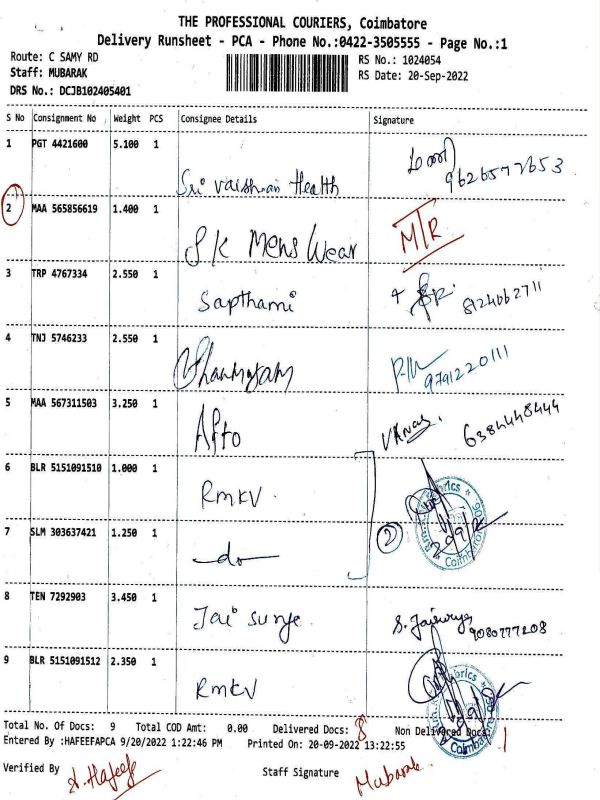 THE PROFESSIONAL COURIERS, Coimbatore
Delivery Runsheet - PCA - Phone No.:0422-3505555 - Page No.:1
Route: C SAMY RD
RS No.: 1024054
Staff: MUBARAK
RS Date: 20-Sep-2022
DRS No.: DCJB102405401
S No Consignment No Weight PCS Consignee Details Signature
1 PGT 4421600 5.100 1 Sri Vaishnavi Health மணி 9626577653
2 MAA 565856619 1.400 1 S K Mens Wear M/R
3 TRP 4767334 2.550 1 Sapthami 8124062711
4 TNJ 5746233 2.550 1 Shanmugam 9791220111
5 MAA 567311503 3.250 1 Afto 6384448444
6 BLR 5151091510 1.000 1 RMKV
7 SLM 303637421 1.250 1 do 2 20/9/22
8 TEN 7292903 3.450 1 Jai Surye S. Jaisurya 9080777208
9 BLR 5151091512 2.350 1 RMKV
Total No. Of Docs: 9 Total COD Amt: 0.00 Delivered Docs: 8 Non Delivered Docs: 1
Entered By :HAFEEFAPCA 9/20/2022 1:22:46 PM Printed On: 20-09-2022 13:22:55
Verified By A. Hafeefa Staff Signature Mubarak.